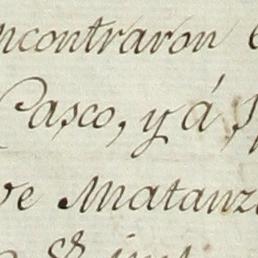 ncontraron
Casco, y á
de Matanz